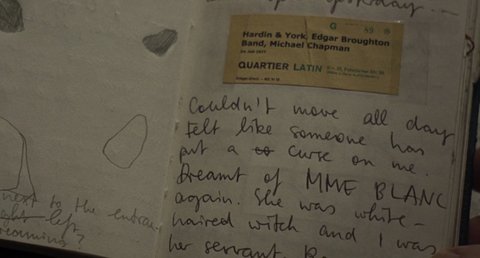 yesterday...
G 49
Hardin & York, Edgar Broughton
Band, Michael Chapman
QUARTIER LATIN
Couldn't move all day
felt like someone has
put a curse on me.
Dreamt of MME BLANC
again. She was white-
haired witch and I was
her servant
next to the
left